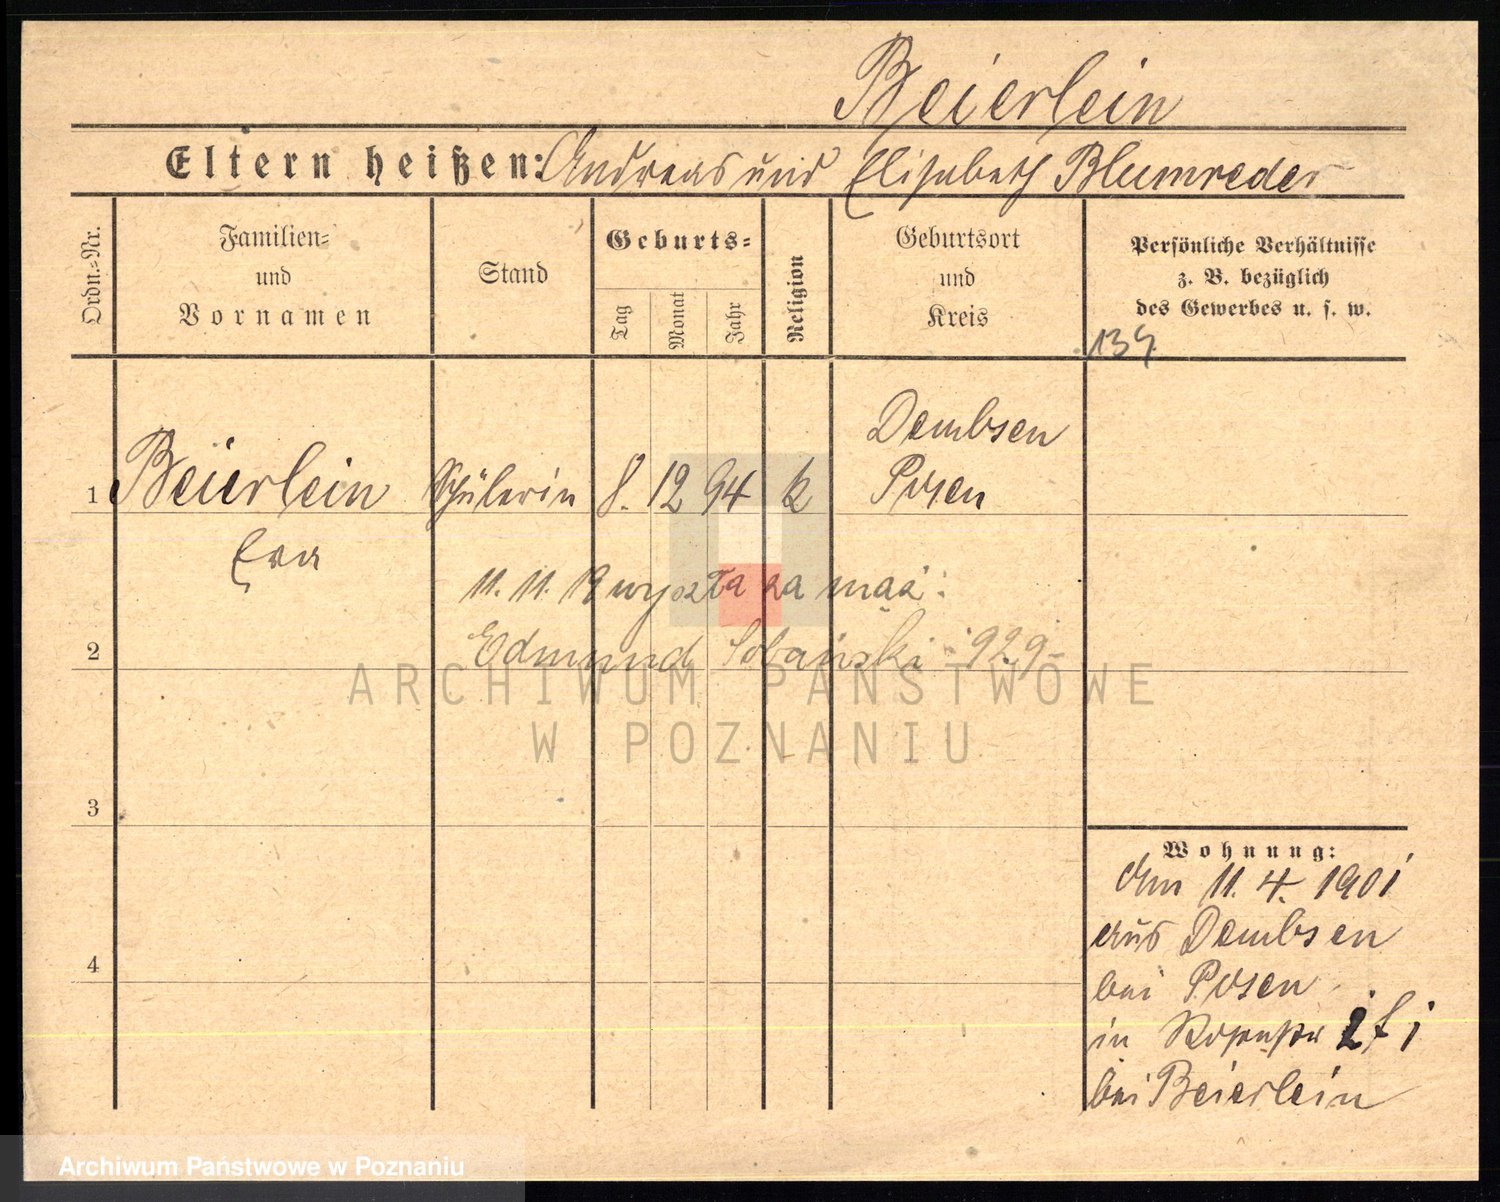 Beierlein
Eltern heißen: Andreas und Elisabeth Blumreder
Ordn.=Nr.
Familien=
und
Vornamen
Stand
Geburts=
Tag
Monat
Jahr
Religion
Geburtsort
und
Kreis
Persönliche Verhältnisse
z. B. bezüglich
des Gewerbes u. s. w.
134
Dembsen
1 Beierlein Schülerin 8. 12 94 k Posen
Eva
11. 11. 19 wyszła za mąż:
2 Edmund Sobański
ARCHIWUM PAŃSTWOWE
W POZNANIU
3
Wohnung:
Am 11. 4. 1901
aus Dembsen
4
bei Posen
in
bei Beierlein
Archiwum Państwowe w Poznaniu